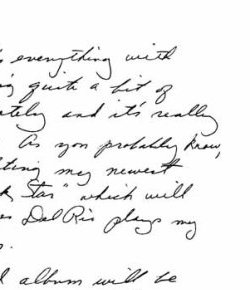 everything with
quite a bit of
and it's really
As you probably know,
my newest
Star" which will
Del Rio plays my
album will be